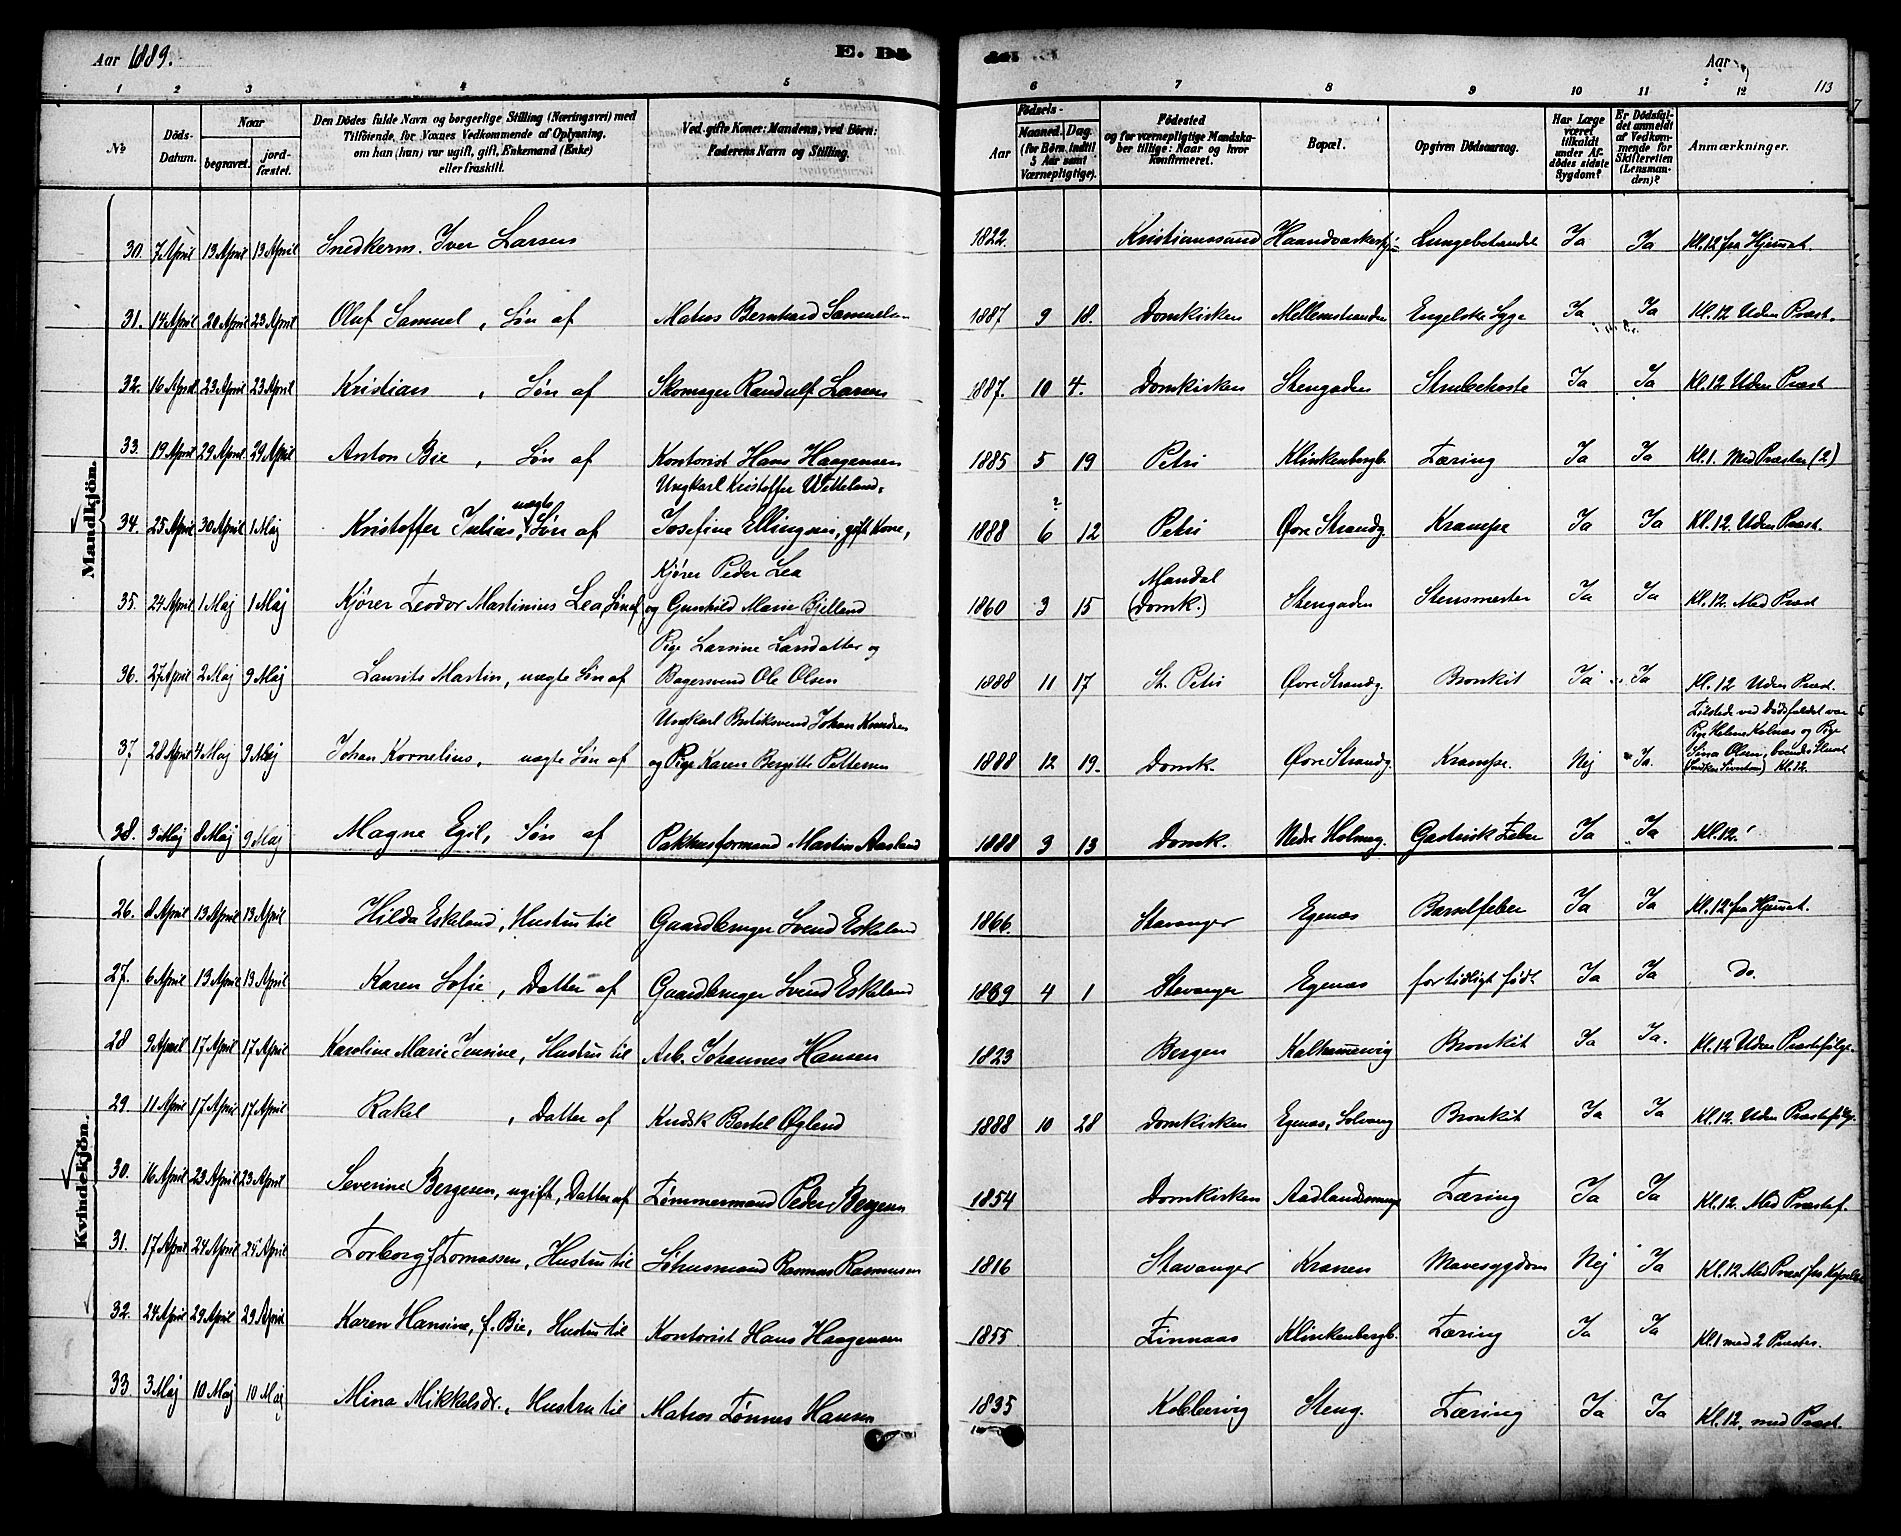 Aar 1889.
E.
Aar
113
1 2 3 4 5 6 7 8 9 10 11 12
No
Döds-Datum.
Naar
begravet.
jord-fæstet.
Den Dödes fulde Navn og borgerlige Stilling (Næringsvei) med
Tilföiende, for Voxnes Vedkommende af Oplysning,
om han (hun) var ugift, gift, Enkemand (Enke)
eller fraskilt.
Ved gifte Koner: Mandens, ved Börn:
Faderens Navn og Stilling.
Födsels-
Aar
Maaned.
Dag.
(for Börn indtil
5 Aar samt
Værnepligtige).
Födested
og for værnepligtige Mandska-
ber tillige: Naar og hvor
Konfirmeret.
Bopæl.
Opgiven Dödsaarsag.
Har Læge
været
tilkaldt
under Af-
dödes sidste
Sygdom?
Er Dödsfal-
det anmeldt
af Vedkom-
mende for
Skifteretten
(Lensman-
den)?
Anmærkninger.
Mandkjön.
30. 7 April 13 April 13 April Snedkerm. Iver Larsen 1822. Kristianssund Lungebetændelse Ja Ja Kl. 12 fra Hjemmet.
31. 14 April 20 April 23 April Oluf Samuel, Søn af Matros Bernhard Samuelsen 1887 9 18. Domkirken Mellemstranden Engelske Syge Ja Ja Kl. 12 Uden Præst.
32. 16 April 23 April 23 April Kristian, Søn af Skomager Randulf Larsen 1887. 10 4. Domkirken Stengaden Strubehoste Ja Ja Kl. 12 Uden Præst
33. 19 April 29 April 29 April Anton Bie, Søn af Kontorist Hans Haagensen 1885 5 19 Petri Klinkenbergb. Tæring Ja Ja Kl. 1. Med Præster (2)
Ungkarl Kristoffer
34. 25 April 30 April 1 Maj Kristoffer Julius, uægte Søn af Josefine Ellingsen, gift Kone, 1888 6 ? 12 Petri Øvre Strandg. Krampe Ja Ja Kl. 12. Uden Præst.
Kjører Peder Lea
Mandal
35. 24 April 1 Maj 1 Maj Kjører Teodor Martinius Lea Søn af og Gunhild Marie Bjelland 1860 3 15 (Domk.) Stengaden Ja Ja Kl. 12. Med Præst
Pige Larsine Larsdatter og
36. 27 April 2 Maj 9 Maj Laurits Martin, uægte Søn af Bagersvend Ole Olsen 1888 11 17 St. Petri Øvre Strandg. Bronkit Ja Ja Kl. 12 Uden Præst.
Ungkarl Butiksvend Johan Knudsen
Tilstede ved Dødsfaldet var
Pige Helene Kolnes og Pige
37 28 April 4 Maj 9 Maj Johan Kornelius, uægte Søn af og Pige Karen Bergitte Pettersen 1888 12 19. Domk. Øvre Strandg. Krampe Nej Ja. Sina Olsen,
Kl. 12.
38. 3 Maj 8 Maj 9 Maj Magne Egil, Søn af Pakhusformand Martin Aasland 1888 3 13 Domk. Nedre Holmeg. Gastrisk Feber Ja Ja Kl. 12.
Kvindekjön.
26. 8 April 13 April 13 April Hilda Eskeland, Hustru til Gaardbruger Svend Eskeland 1866. Stavanger Egenæs Barselfeber Ja Ja Kl. 12 fra Hjemmet.
27. 6 April 13 April 13 April Karen Sofie, Datter af Gaardbruger Svend Eskeland 1889 4 1 Stavanger Egenæs for tidligt født Ja Ja Do.
28 9 April 17 April 17 April Karoline Marie Jensine, Hustru til Arb. Johannes Hansen 1823 Bergen Kalhammervig Bronkit Ja Ja. Kl. 12 Uden Præstefølge.
29. 11 April 17 April 17 April Rakel, Datter af Kudsk Bertel Øglend 1888 10 28 Domkirken Egenæs, Solvang Bronkit Ja Ja Kl. 12. Uden Præstefølge.
30. 16 April 23 April 23 April Severine Bergesen, ugift, Datter af Tømmermand Peder Bergesen 1854 Domkirken Tæring Ja Ja Kl. 12. Med Præstef.
31. 17 April 24 April 24 April Torborg f. Tomassen, Hustru til Rasmus Rasmussen 1816 Stavanger Kranen Mavesygdom Nej Ja Kl. 12 Med Præst fra Kapellet
32. 24 April 29 April 29 April Karen Hansine, f. Bie, Hustru til Kontorist Hans Haagensen 1855 Finnaas Klinkenbergb. Tæring Ja Ja Kl. 1 med 2 Præster.
33. 3 Maj 10 Maj 10 Maj Mina Mikkelsdr., Hustru til Matros Tønnes Hansen 1835 Kobbervig Steng. Tæring Ja Ja Kl. 12. med Præst.